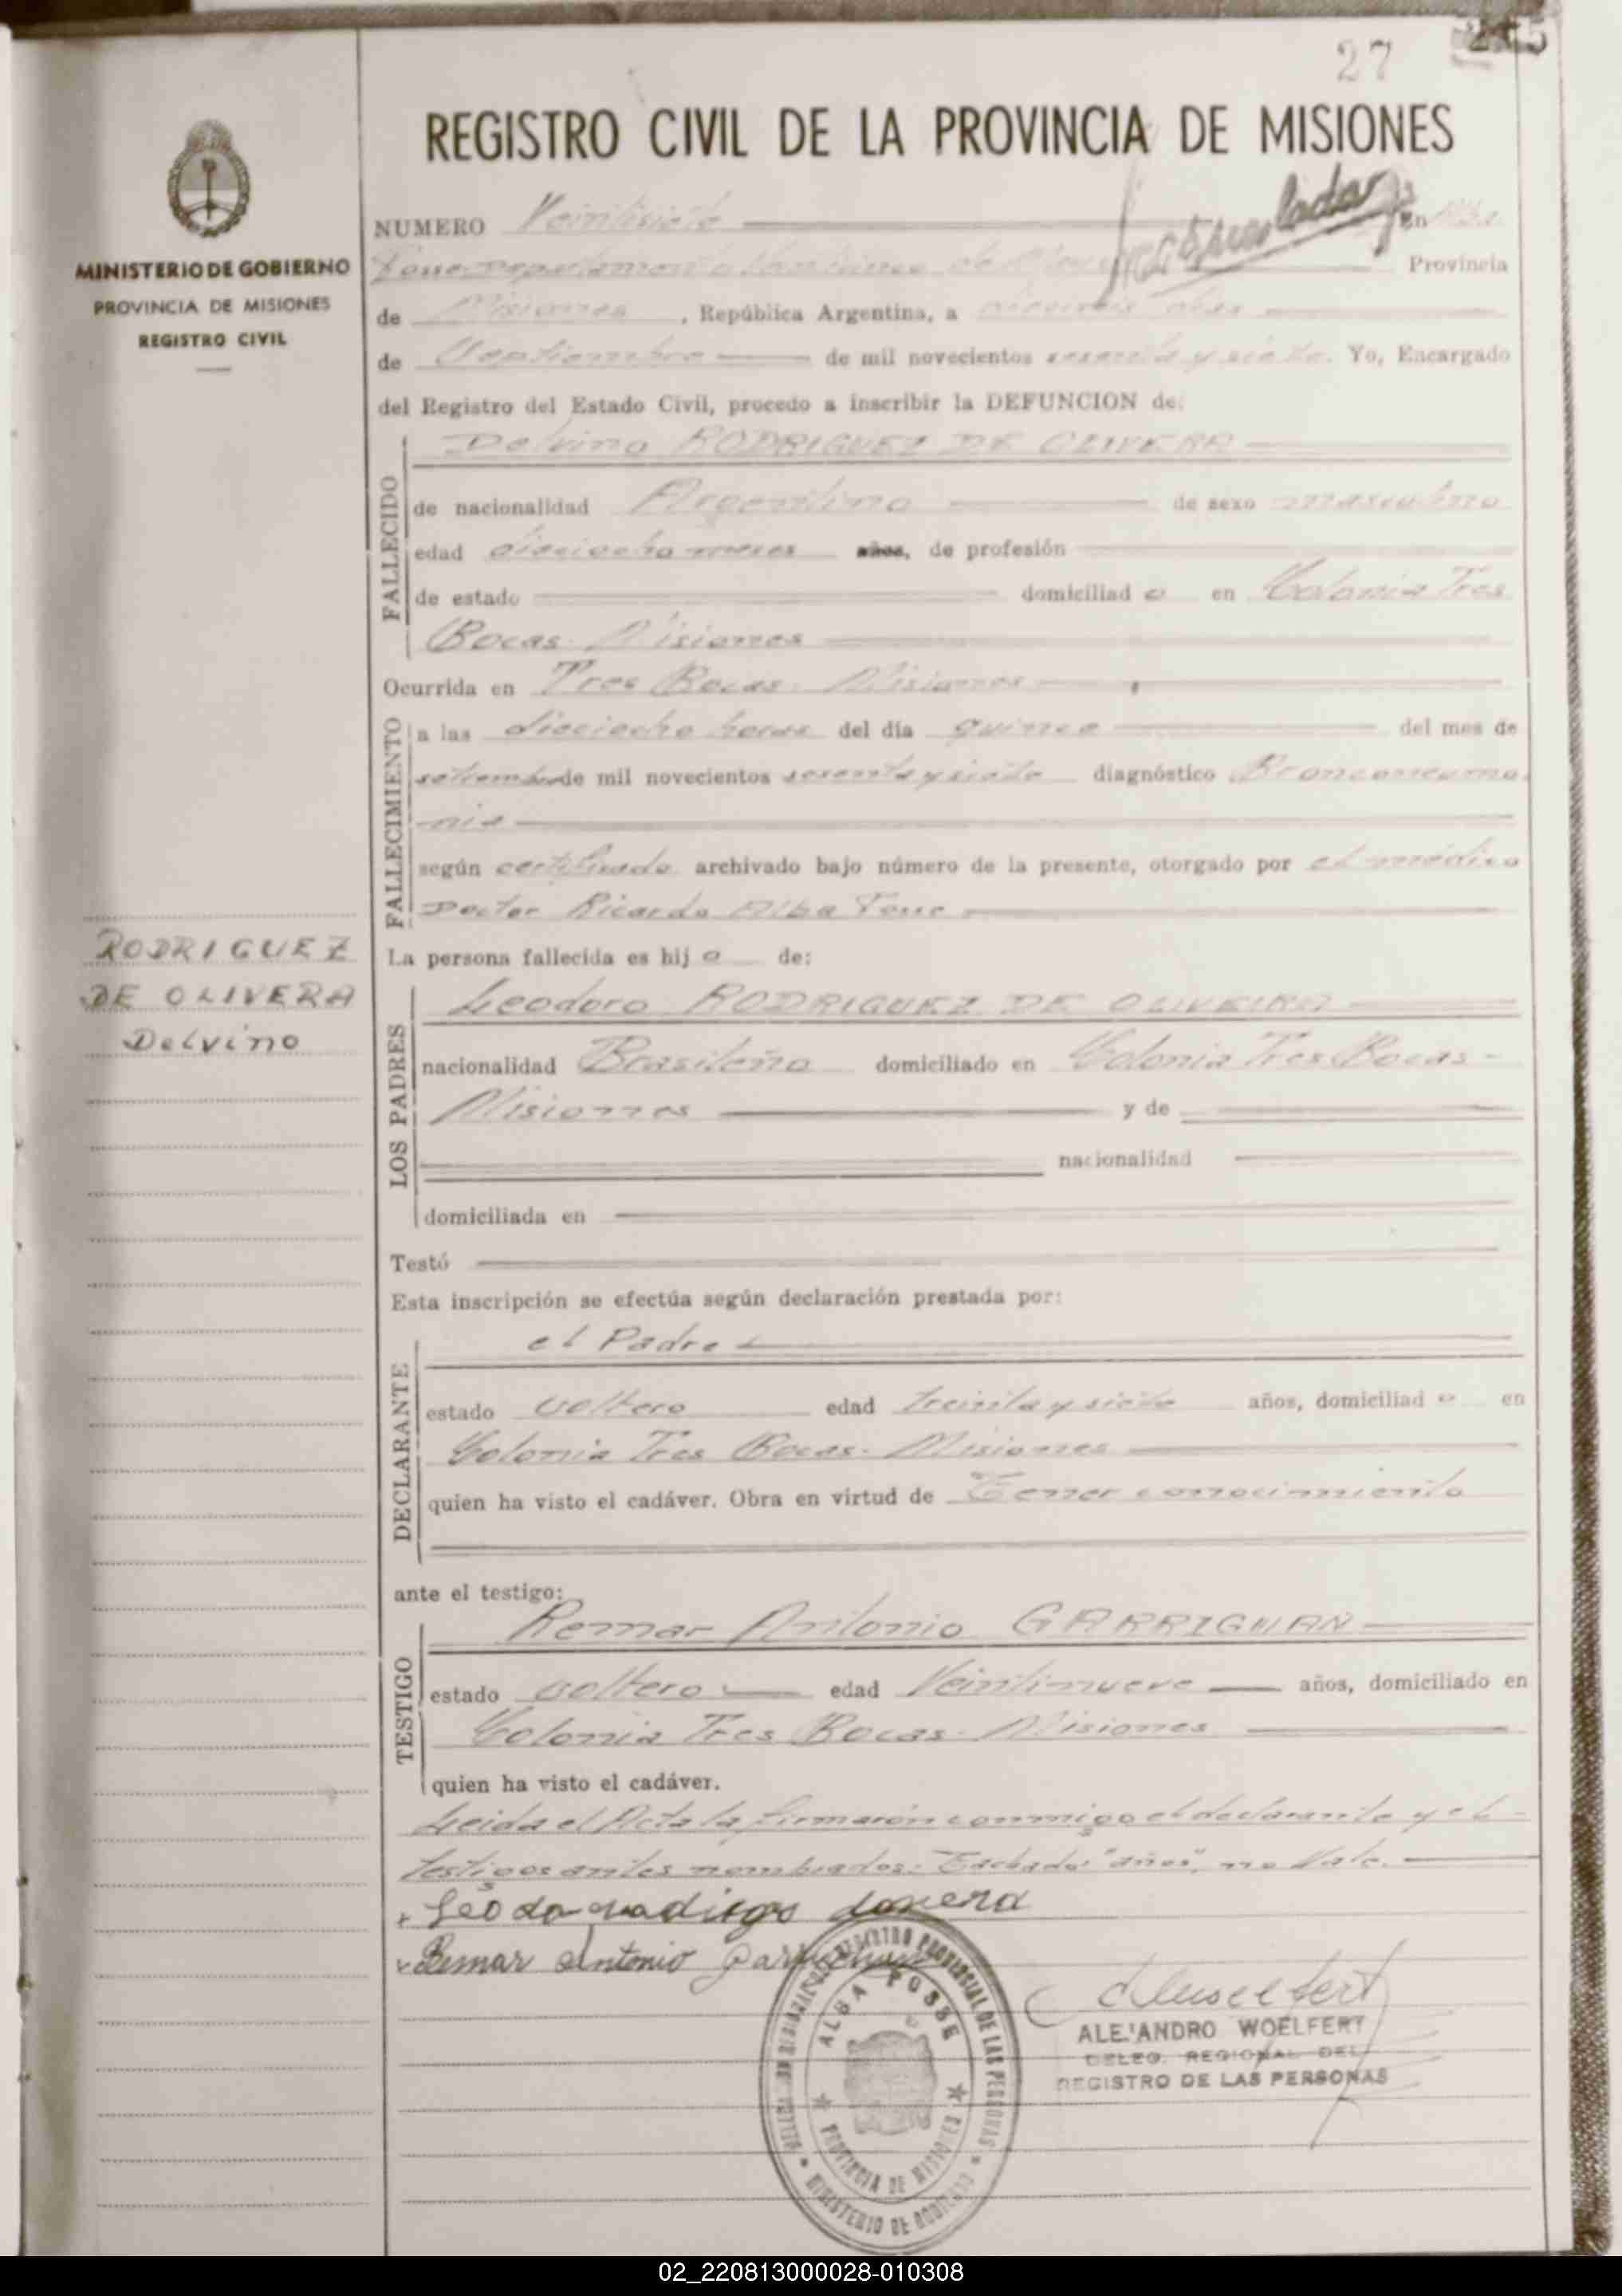 27
REGISTRO CIVIL DE LA PROVINCIA DE MISIONES
MINISTERIO DE GOBIERNO
PROVINCIA DE MISIONES
REGISTRO CIVIL
NUMERO Veintisiete En Alba
Posse Provincia
de Misiones, República Argentina, a dieciseis dias
de Septiembre de mil novecientos sesenta y siete. Yo, Encargado
del Registro del Estado Civil, procedo a inscribir la DEFUNCION de:
FALLECIDO
Delvino RODRIGUEZ DE OLIVERA
de nacionalidad Argentino de sexo masculino
edad dieciocho meses años, de profesión
de estado domiciliad o en Colonia Tres
Bocas. Misiones
Ocurrida en Tres Bocas. Misiones
FALLECIMIENTO
a las dieciocho horas del día quince del mes de
setiembre de mil novecientos sesenta y siete diagnóstico Bronconeumo
nia
según certificado archivado bajo número de la presente, otorgado por el médico
Doctor Ricardo Alba Posse
RODRIGUEZ
DE OLIVERA
Delvino
La persona fallecida es hij o de:
LOS PADRES
Leodoro RODRIGUEZ DE OLIVEIRA
nacionalidad Brasileño domiciliado en Colonia Tres Bocas-
Misiones y de
nacionalidad
domiciliada en
Testó
Esta inscripción se efectúa según declaración prestada por:
DECLARANTE
el Padre
estado soltero edad treinta y siete años, domiciliad o en
Colonia Tres Bocas. Misiones
quien ha visto el cadáver. Obra en virtud de Tener conocimiento
ante el testigo:
TESTIGO
Remar Antonio GARRIGHAN
estado soltero edad Veintinueve años, domiciliado en
Colonia Tres Bocas. Misiones
quien ha visto el cadáver.
Leida el Acta la firmaron conmigo el declarante y el
testigos antes nombrados. Tachado: "años", no Vale.
Remar Antonio
REGISTRO PROVINCIAL DE LAS PERSONAS
ALBA POSSE
PROVINCIA DE MISIONES
MINISTERIO DE GOBIERNO
ALEJANDRO WOELFERT
DELEG. REGIONAL DEL
REGISTRO DE LAS PERSONAS
02_220813000028-010308